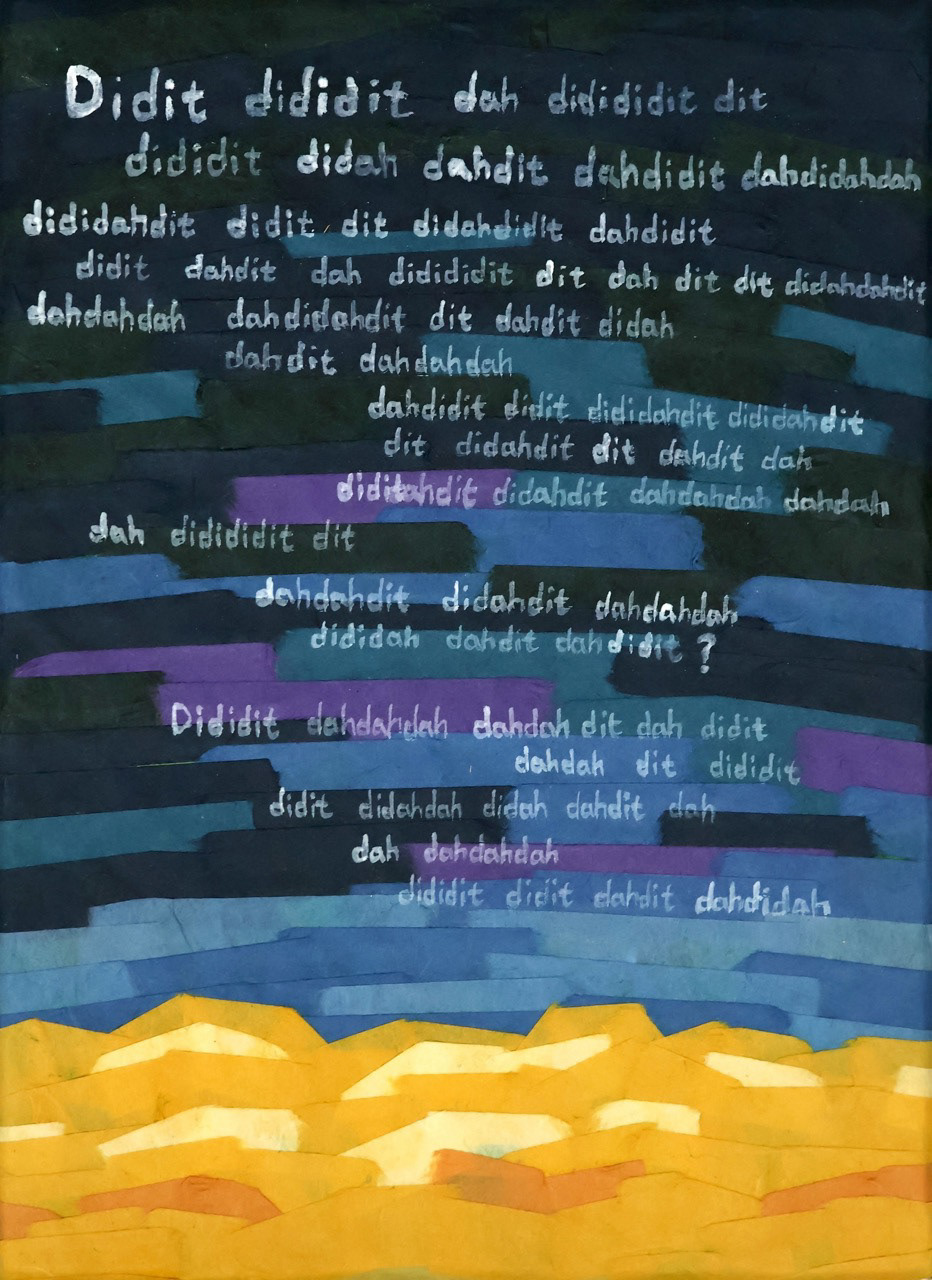 Didit dididit dah didididit dit
dididit didah dahdit dahdidit dahdidahdah
dididahdit didit dit didahdidit dahdidit
didit dahdit dah didididit dit dah dit dit didahdahdit
dahdahdah dahdidahdit dit dahdit didah
dahdit dahdahdah
dahdidit didit dididahdit dididahdit
dit didahdit dit dahdit dah
didahdit dahdahdah dahdah
dah didididit dit
dahdahdit didahdit dahdahdah
dididah dahdit dahdidit ?
Dididit dahdahdah dahdah dit dah didit
dahdah dit dididit
didit didahdah didah dahdit dah
dah dahdahdah
dididit didit dahdit dahdidah